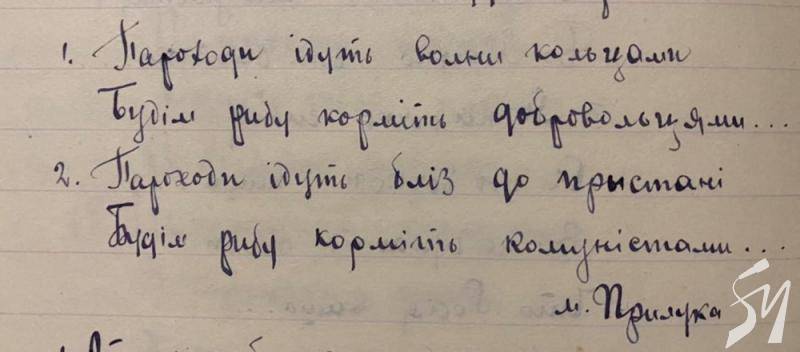 1. Пароходи ідуть волни кольцами
Будім рибу корміть добровольцями...
2. Пароходи ідуть бліз до прыстані
Будім рибу корміть комуністами...
м. Прилука